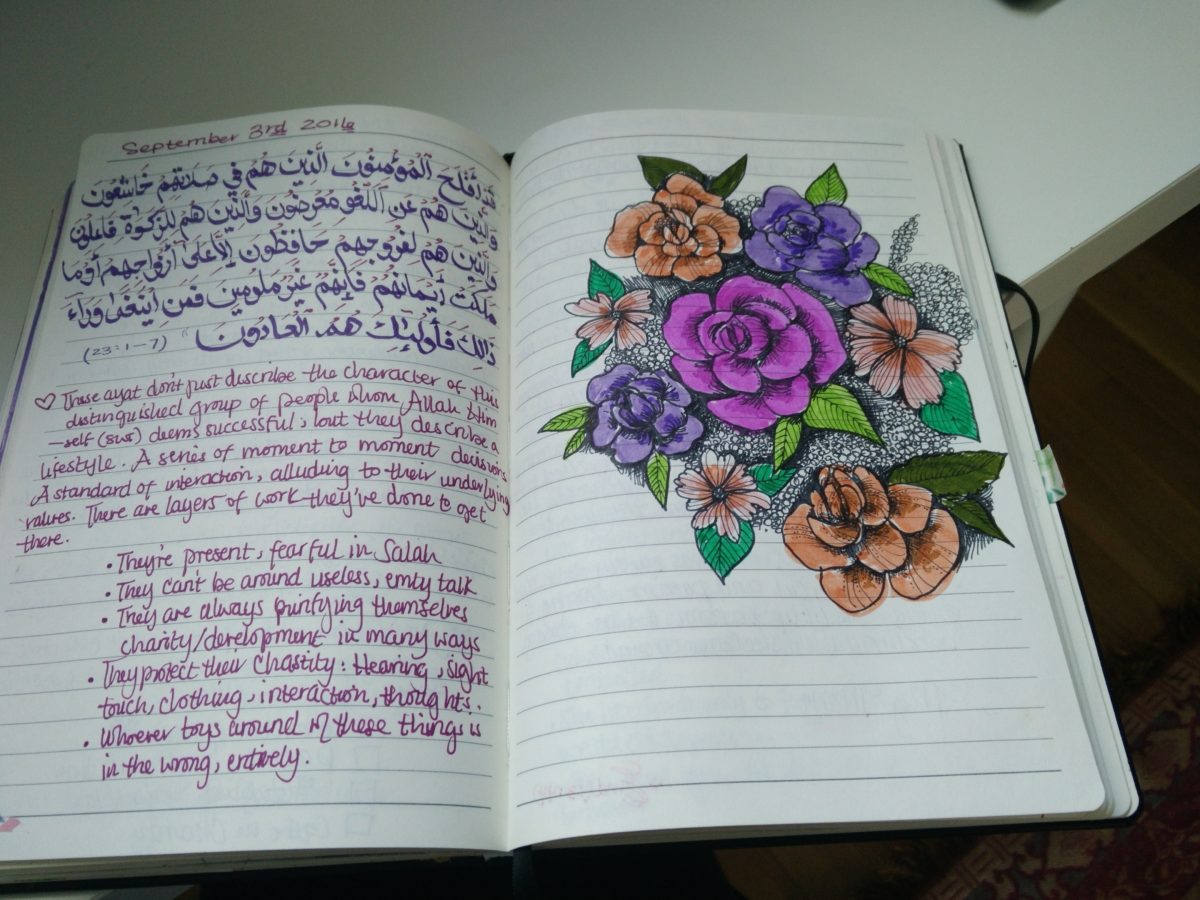 September 3rd 2016
قَدْ أَفْلَحَ ٱلْمُؤْمِنُونَ الَّذِينَ هُمْ فِي صَلَاتِهِمْ خَاشِعُونَ
وَالَّذِينَ هُمْ عَنِ ٱللَّغْوِ مُعْرِضُونَ وَالَّذِينَ هُمْ لِلزَّكَوٰةِ فَاعِلُونَ
وَالَّذِينَ هُمْ لِفُرُوجِهِمْ حَافِظُونَ إِلَّا عَلَىٰ أَزْوَاجِهِمْ أَوْ مَا
مَلَكَتْ أَيْمَانُهُمْ فَإِنَّهُمْ غَيْرُ مَلُومِينَ فَمَنِ ابْتَغَىٰ وَرَاءَ
ذَالِكَ فَأُولَٰئِكَ هُمُ الْعَادُونَ (23:1-7)
♡ These ayat don't just describe the character of this
distinguished group of people whom Allah Him
-self (swt) deems successful, but they describe a
lifestyle. A series of moment to moment decisions
A standard of interaction, alluding to their underlying
values. There are layers of work they've done to get
there.
• They're present, fearful in Salah
• They can't be around useless, emty talk
• They are always purifying themselves
charity/development in many ways
• They protect their chastity: Hearing, sight
touch, clothing, interaction, thoughts.
• Whoever toys around these things is
in the wrong, entirely.